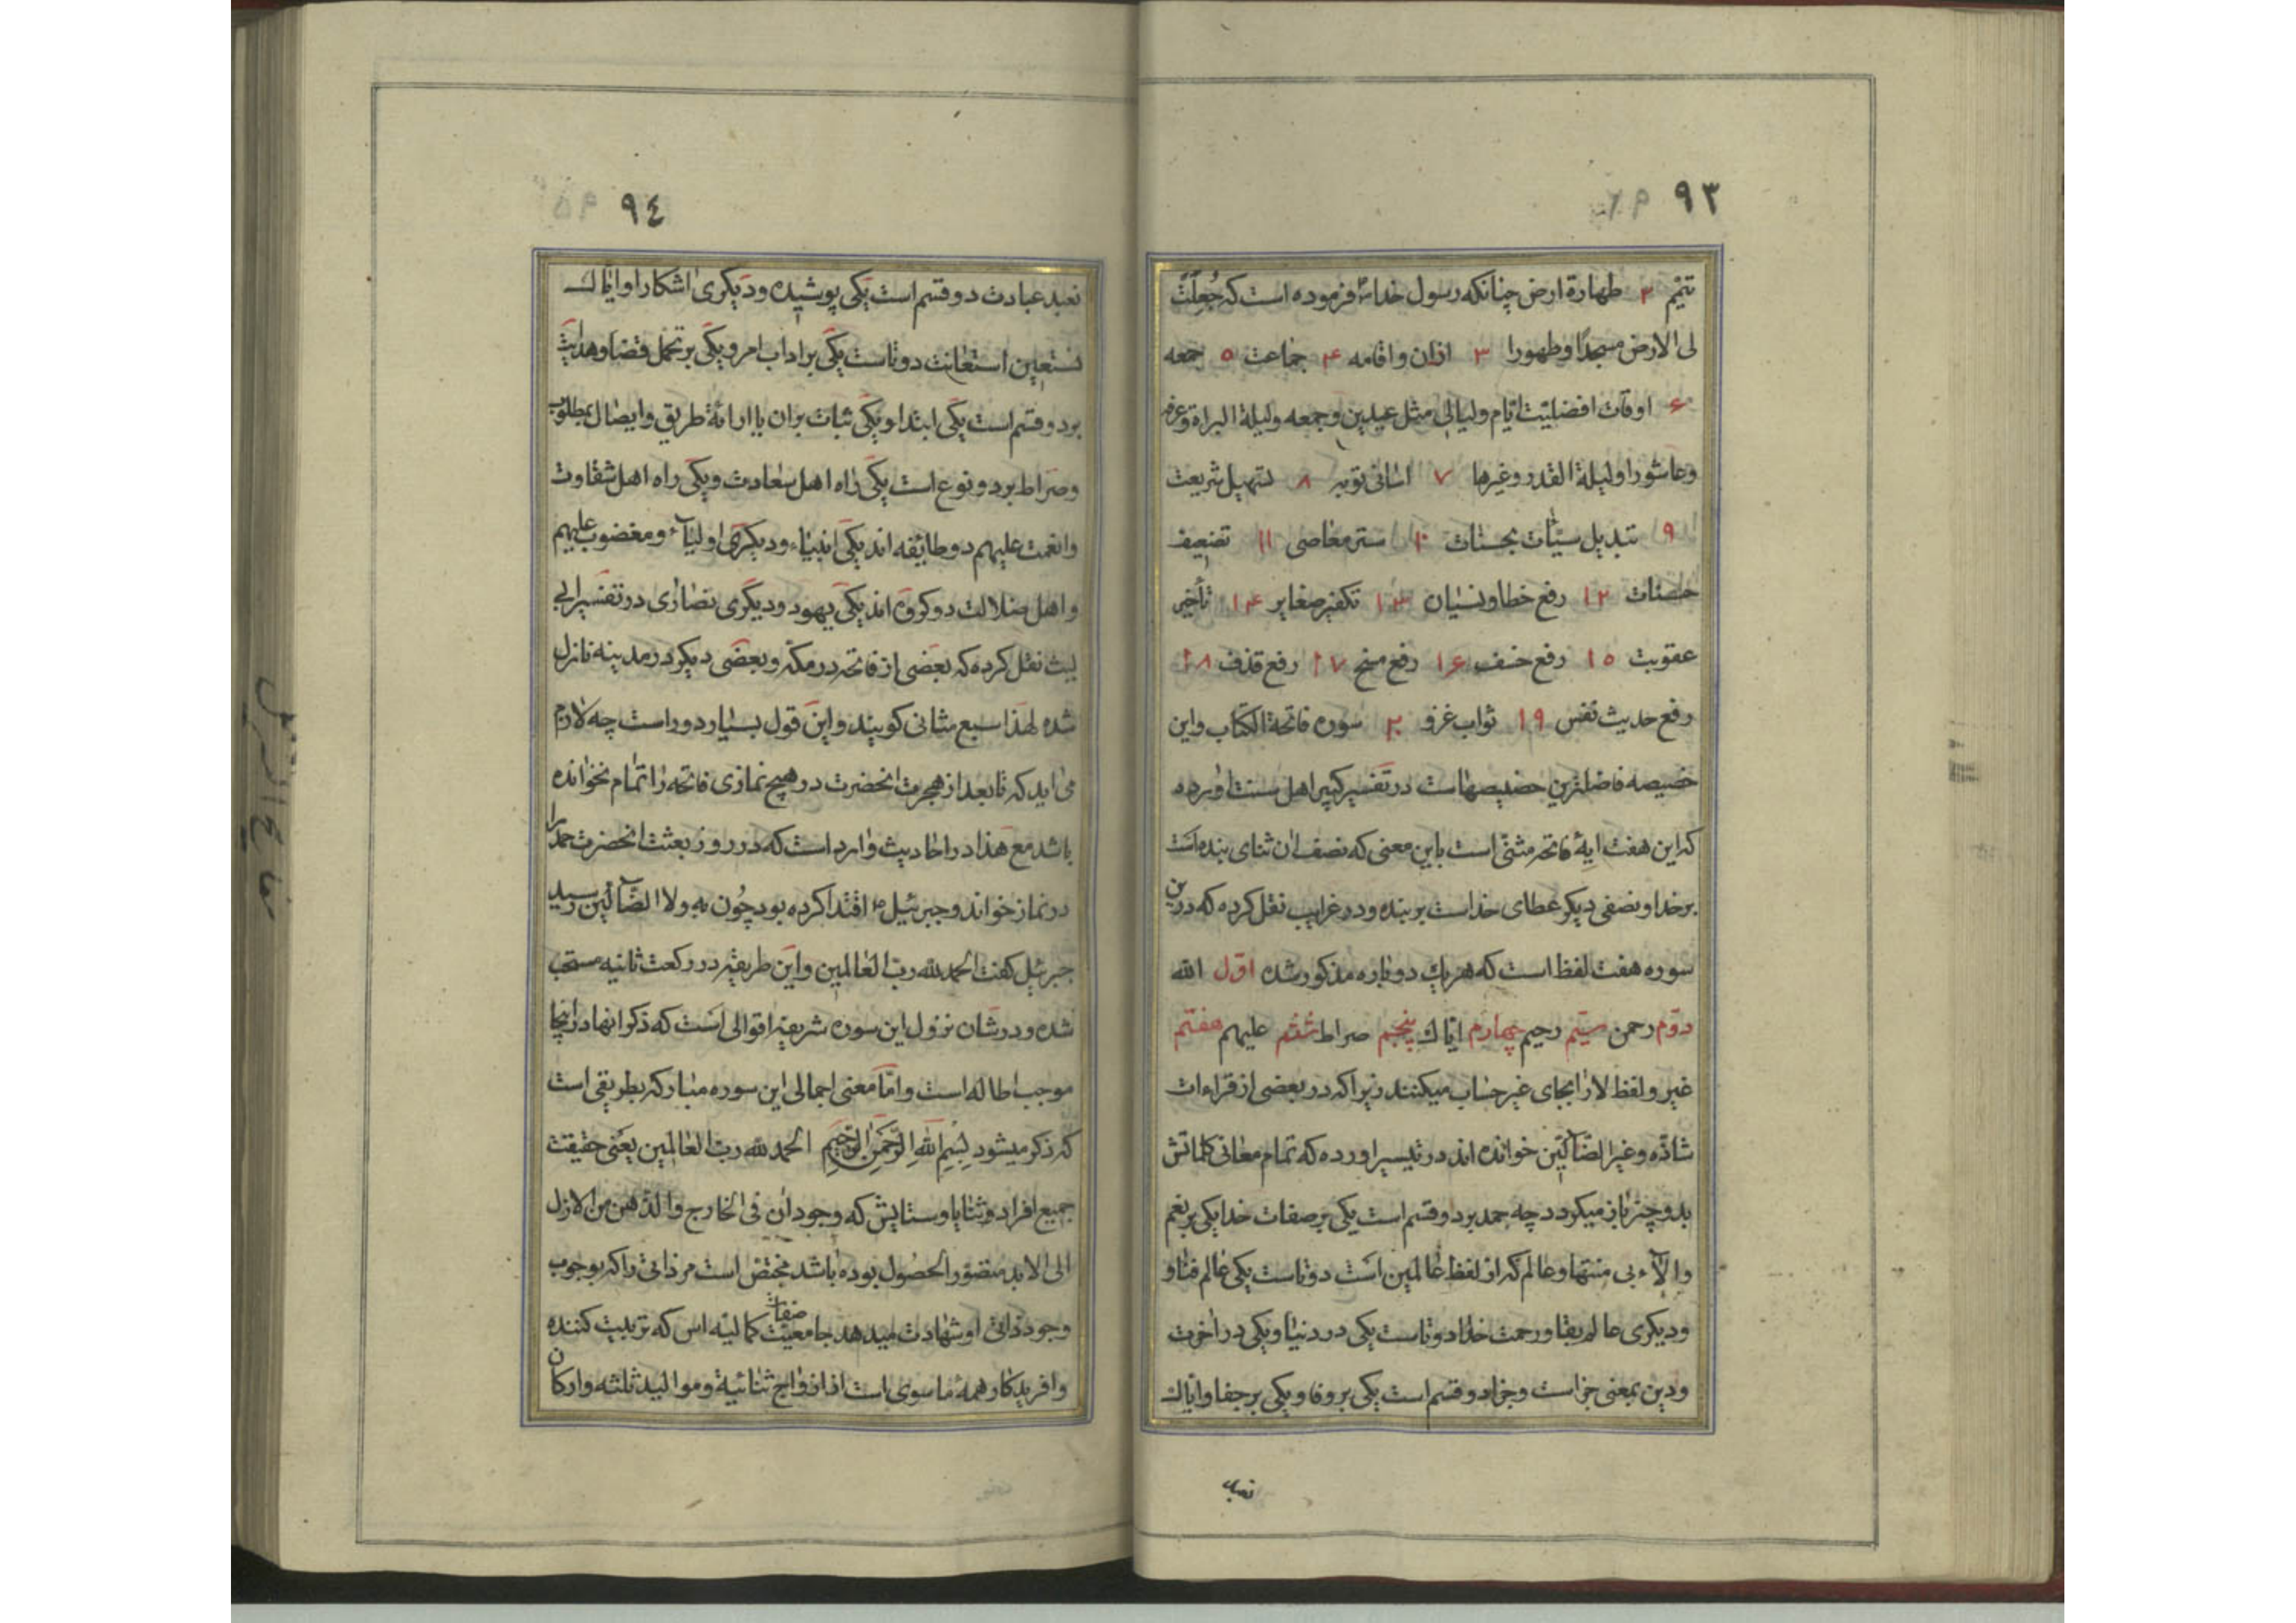 ٩٣
تتیم ٢ طهارة ارض چنانکه رسول خدا فرموده است که جُعِلَت
لی الارض مسجدًا وطهورا ٣ اذان واقامه ۴ جماعت ٥ جمعه
۶ اوقات افضلیّت ایّام ولیالی مثل عیدین وجمعه ولیلة البراة وعرفه
وعاشورا ولیلة القدر وغیرها ٧ اسانی توبه ٨ تسهیل شریعت
٩ تبدیل سیّئات بحسنات ١٠ ستر معاصی ١١ تضعیف
حسنات ١٢ رفع خطا ونسیان ١٣ تکفیر صغایر ١۴ تأخیر
عقوبت ١٥ رفع خسف ١۶ رفع مسخ ١٧ رفع قذف ١٨
رفع حدیث نفس ١٩ ثواب غزو ٢٠ سوره فاتحة الکتاب واین
خصیصه فاضلترین خصیصهاست در تفسیر کبیر اهل سنت اورده
که این هفت ایهٔ فاتحه مثنّی است باین معنی که نصف ان ثنای بنده است
بر خدا ونصفی دیکر عطای خداست بر بنده ودر غرایب نقل کرده که درین
سوره هفت لفظ است که هر یك دوباره مذکور شده اوّل الله
دوّم رحمن سیّم رحیم چهارم ایّاك پنجم صراط ششم علیهم هفتم
غیر ولفظ لا را بجای غیر حساب میکنند زیرا که در بعضی از قراءات
شاذّه وغیر الضّآلّین خوانده اند در تیسیر اورده که تمام معانی کلماتش
بدو چیز باز میکردد چه حمد بر دو قسم است یکی بر صفات خدا یکی بر نعم
والآء بی منتها وعالم که از لفظ عالمین است دوتاست یکی عالم فنا و
ودیکری عالم بقا ورحمت خدا دوتاست یکی در دنیا ویکی در اخرت
ودین بمعنی جزاست وجزا دو قسم است یکی بر وفا ویکی بر جفا وایّاك
نعبد
٩٤
نعبد عبادت دو قسم است یکی پوشیده ودیکری اشکارا وایّاك
نستعین استعانت دوتاست یکی بر اداب امر ویکی بر تحمل قضا وهدایت
بر دو قسم است یکی ابتدا ویکی ثبات بران یا ارائهٔ طریق وایصال بمطلوب
وصراط بر دو نوع است یکی راه اهل سعادت ویکی راه اهل شقاوت
وانعمت علیهم دو طایفه اند یکی انبیاء ودیکری اولیآء ومغضوب علیهم
واهل ضلالت دو کروه اند یکی یهود ودیکری نصاری در تفسیر ابی
لیث نقل کرده که بعضی از فاتحه در مکّه وبعضی دیکر در مدینه نازل
شده لهذا سبع مثانی کویند واین قول بسیار دور است چه لازم
می اید که تا بعد از هجرت انحضرت در هیچ نمازی فاتحه را تمام نخوانده
باشد مع هذا در احادیث وارد است که در روز بعثت انحضرت حمد را
در نماز خواند وجبرئیل اقتدا کرده بود چُون به ولا الضّآلّین رسید
جبرئیل کفت الحمد لله ربّ العالمین واین طریقه در رکعت ثانیه مستحب
شده ودر شان نزول این سوره شریفه اقوالی است که ذکر انها در اینجا
موجب اطاله است وامّا معنی اجمالی این سوره مبارکه بطریقی است
که ذکر میشود بِسْمِ اللهِ الرَّحْمنِ الرَّحِیمِ الحمد لله ربّ العالمین یعنی حقیقت
جمیع افراد وثنایا وستایش که وجود ان فی الخارج والذهن من الازل
الی الابد متصوّر الحصُول بوده باشد مختص است مر ذاتی را که بوجوب
وجود ذاتی او شهادت میدهد جامعیّت صفات کمالیّه اس که تربیت کننده
وافریدکار همهٔ ماسوی است از ازواج ثنائیة وموالید ثلثه وارکان